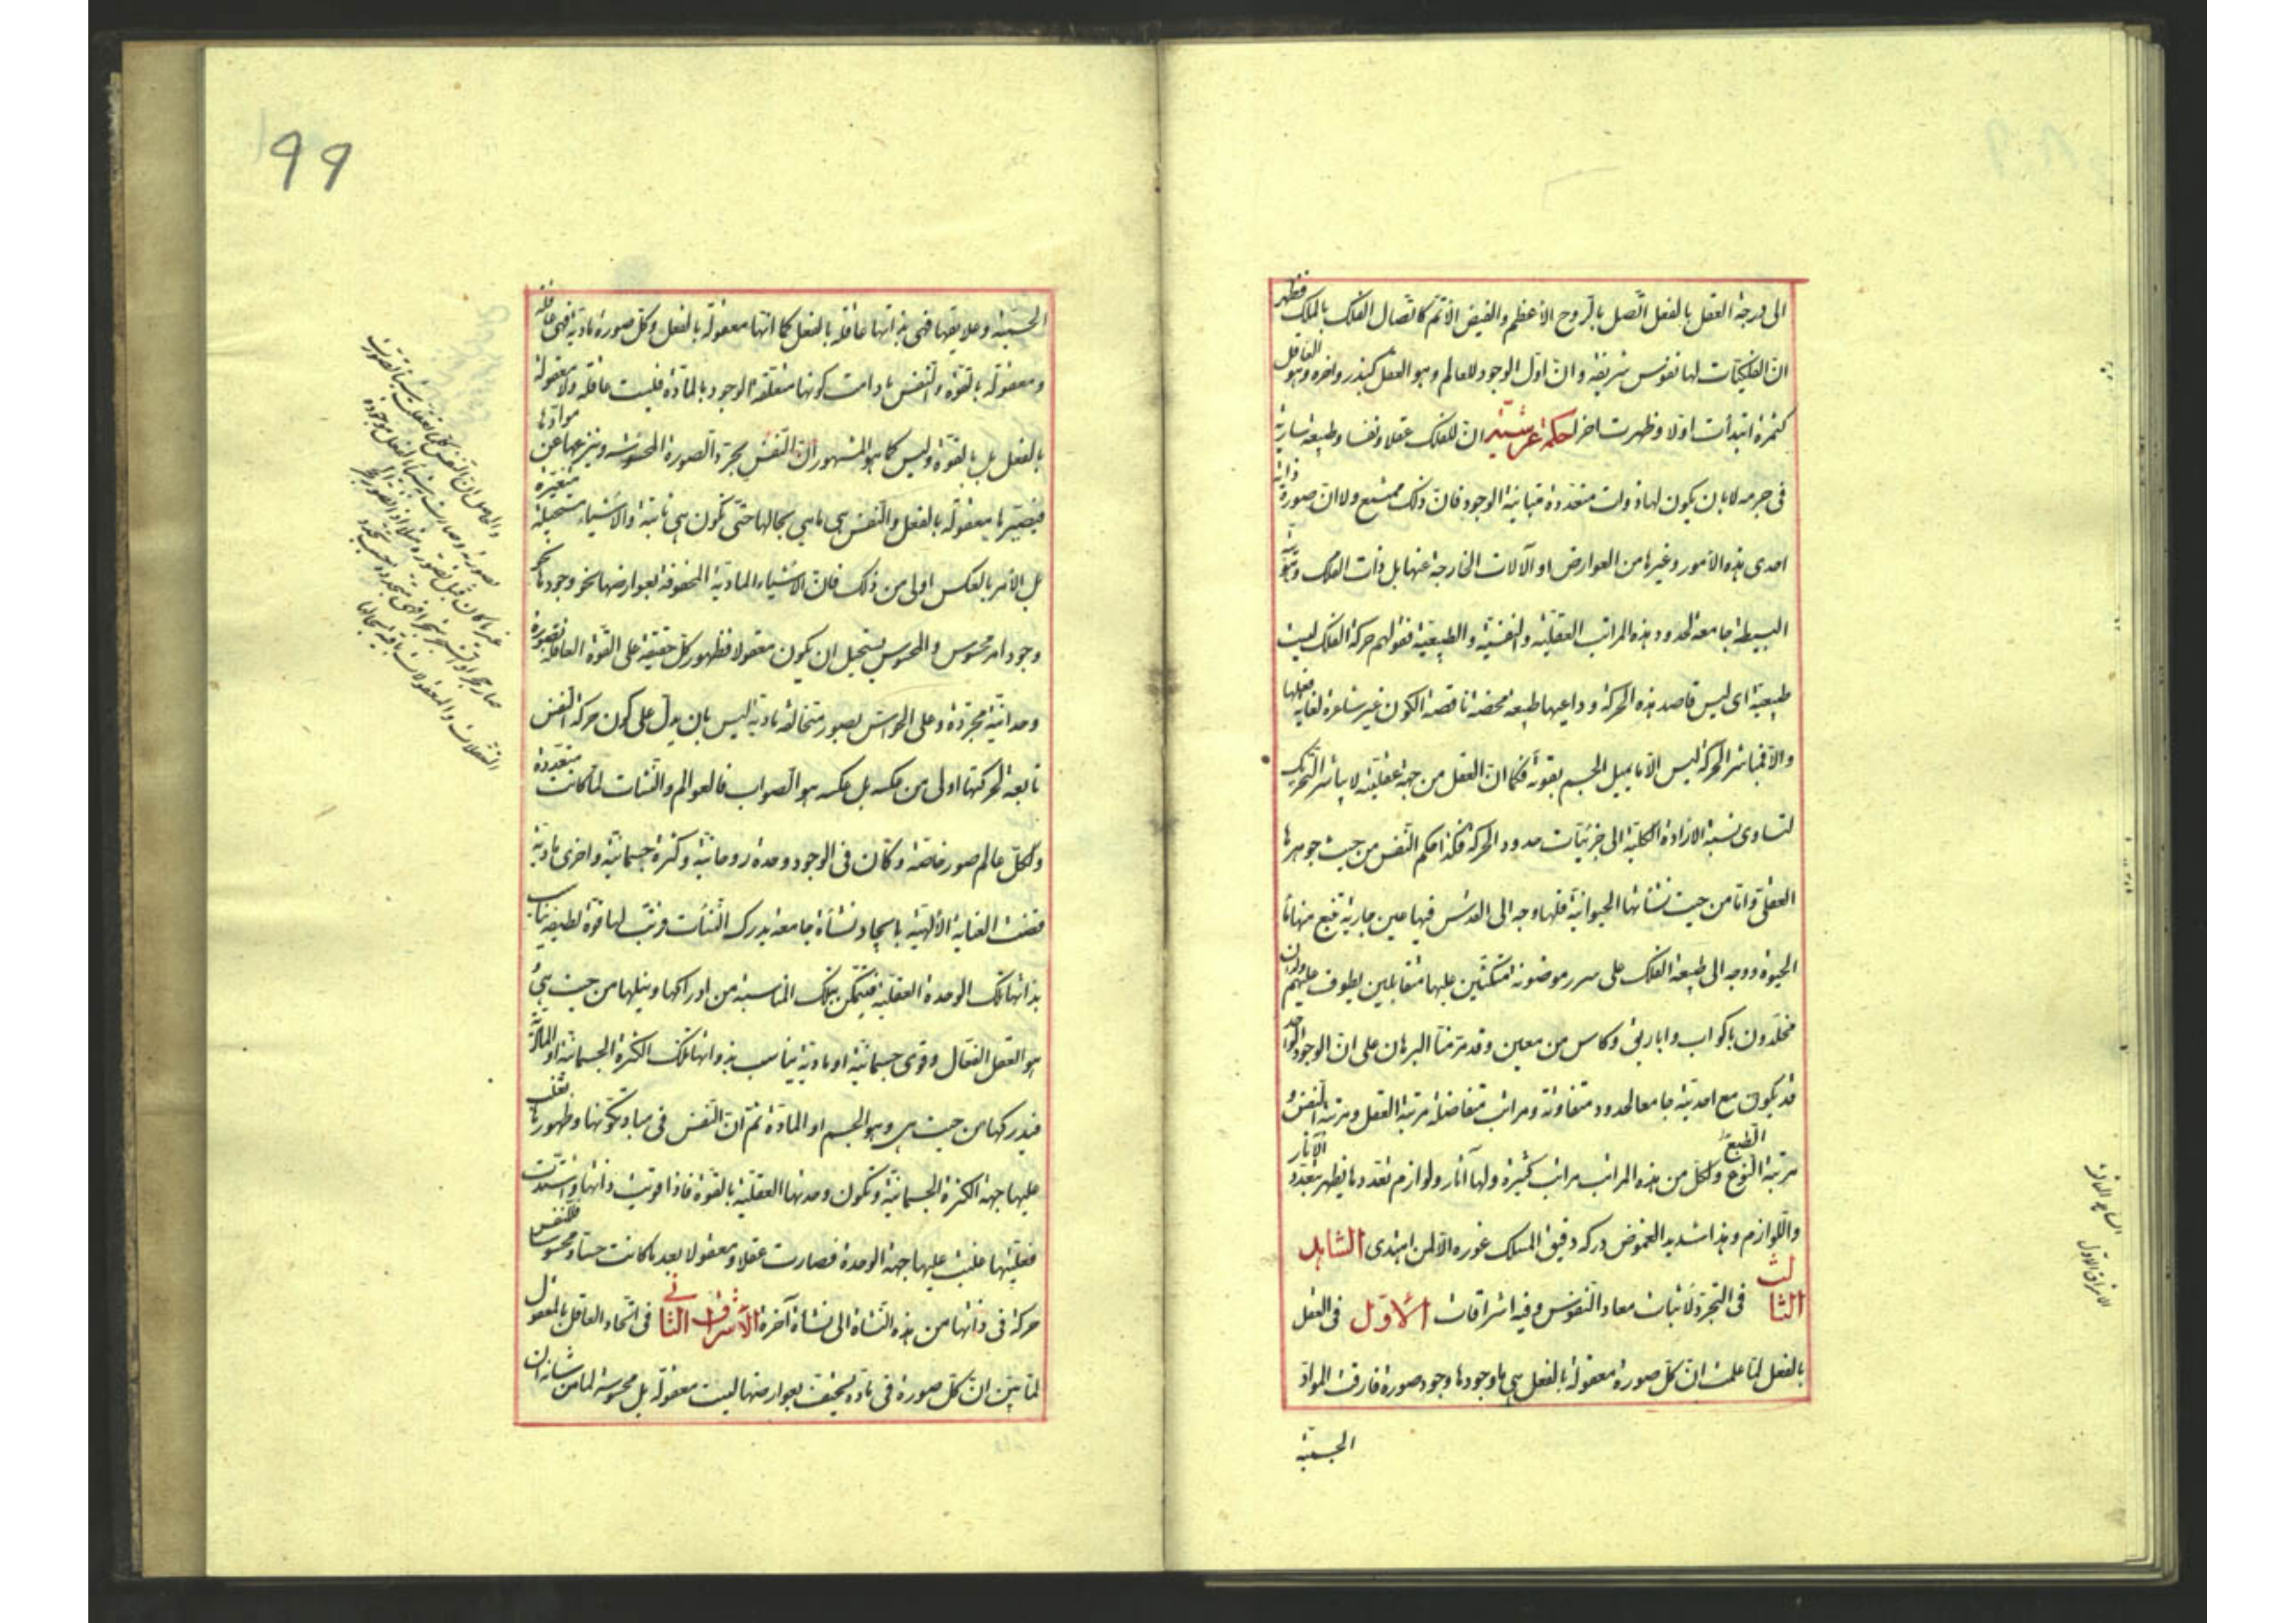 الى درجة العقل بالفعل اتصل بالروح الاعظم والفيض الاتم كاتصال الفلك بالملك فظهر
ان الفلكيات لها نفوس شريفة وان اول الوجود للعالم وهو العقل كبذر واخره وهو العاقل
كثمرة ابتدأت اولا وظهرت اخرا حكمة عرشية ان للفلك عقلا ونفسا وطبيعة سارية
فى جرمه لا بان يكون لها ذوات متعددة متباينة الوجود فان ذلك ممتنع ولا ان صورة ذاته
احدى هذه الامور وغيرها من العوارض او الآلات الخارجة عنها بل ذات الفلك وهويته
البسيطة جامعة لحدود هذه المراتب العقلية والنفسية والطبيعية فقولهم حركة الفلك ليست
طبيعية اى ليس قاصد هذه الحركة وداعيها طبيعة محضة ناقصة الكون غير شاعرة لغاية فعلها
والا فمباشر الحركة ليس الا ما يميل الجسم بقوته فكما ان العقل من جهة عقليته لا يباشر التحريك
لتساوى نسبة الارادة الكلية الى جزئيات حدود الحركة فكذا حكم النفس من حيث جوهرها
العقلى واما من حيث نشأتها الحيوانية فلها وجه الى القدس فيها عين جارية تنبع منها ماء
الحيوة ووجه الى طبيعة الفلك على سرر موضونة متكئين عليها متقابلين يطوف عليهم ولدان
مخلدون باكواب واباريق وكاس من معين وقد مر منا البرهان على ان الوجود الواحد
قد يكون مع احديته جامعا لحدود متفاوتة ومراتب متفاضلة مرتبة العقل ومرتبة النفس
مرتبة الطبع ولكل من هذه المراتب مراتب كثيرة ولها آثار ولوازم تعددها يظهر بتعدد الآثار
واللوازم وهذا شديد الغموض دركه دقيق المسلك غوره الا لمن اهتدى الشاهد
الثالث فى التجرد لاثبات معاد النفوس وفيه اشراقات الاول فى العقل
بالفعل لما علمت ان كل صورة معقولة بالفعل هى ما وجودها وجود صورة فارقت المواد
الجسمية
99
الجسمية وعلايقها فهى بذاتها عاقلة بالفعل كما انها معقولة بالفعل وكل صورة مادية فهى عاقلة
ومعقولة بالقوة والنفس ما دامت كونها متعلقة الوجود بالمادة فليست عاقلة ولا معقولة
بالفعل بل بالقوة وليس كما هو المشهور ان النفس يجرد الصورة المحسوسة وينزعها عن موادها
فيصيرها معقولة بالفعل والنفس هى ما هى بحالها حتى تكون هى ثابتة والاشياء مستحيلة متغيرة
بل الأمر بالعكس اولى من ذلك فان الاشياء المادية المحفوفة بعوارضها نحو وجودها
وجود امر محسوس والمحسوس يستحيل ان يكون معقولا فظهور كل حقيقة على القوة العاقلة بصورة
وحدانية مجردة وعلى الحواس بصور متخالفة مادية ليس بان يدل على كون حركة النفس
تابعة لحركتها اولى من عكسه بل عكسه هو الصواب فالعوالم والنشات لما كانت متعددة
ولكل عالم صور خاصة وكان فى الوجود وحدة روحانية وكثرة جسمانية واخرى مادية
فقضت العناية الالهية بايجاد نشأة جامعة يدرك النشأت فرتب لها قوة لطيفة يناسب
بذاتها تلك الوحدة العقلية فيتمكن بتلك المناسبة من ادراكها ونيلها من حيث هى
هو العقل الفعال وقوى جسمانية او مادية يناسب بذواتها تلك الكثرة الجسمانية او المادية
فيدركها من حيث هى وهو الجسم او المادة ثم ان النفس فى مبادى تكونها وظهورها يغلب
عليها جهة الكثرة الجسمانية وتكون وحدتها العقلية بالقوة فاذا قويت ذاتها واشتدت
فعليتها غلبت عليها جهة الوحدة فصارت عقلا ومعقولا بعد ما كانت حسا ومحسوسا فللنفس
حركة فى ذاتها من هذه النشاة الى نشاة آخرة الاشراق الثانى فى اتحاد العاقل بالمعقول
لما تبين ان كل صورة فى مادة يحتف بعوارضها ليست معقولة بل محسوسة لما من شانه ان
والحاصل ان النفس كلما تعقلت شيئا تصورت
بصورته وصارت
والمعقولات باقية بحالها
الاشراق الاول